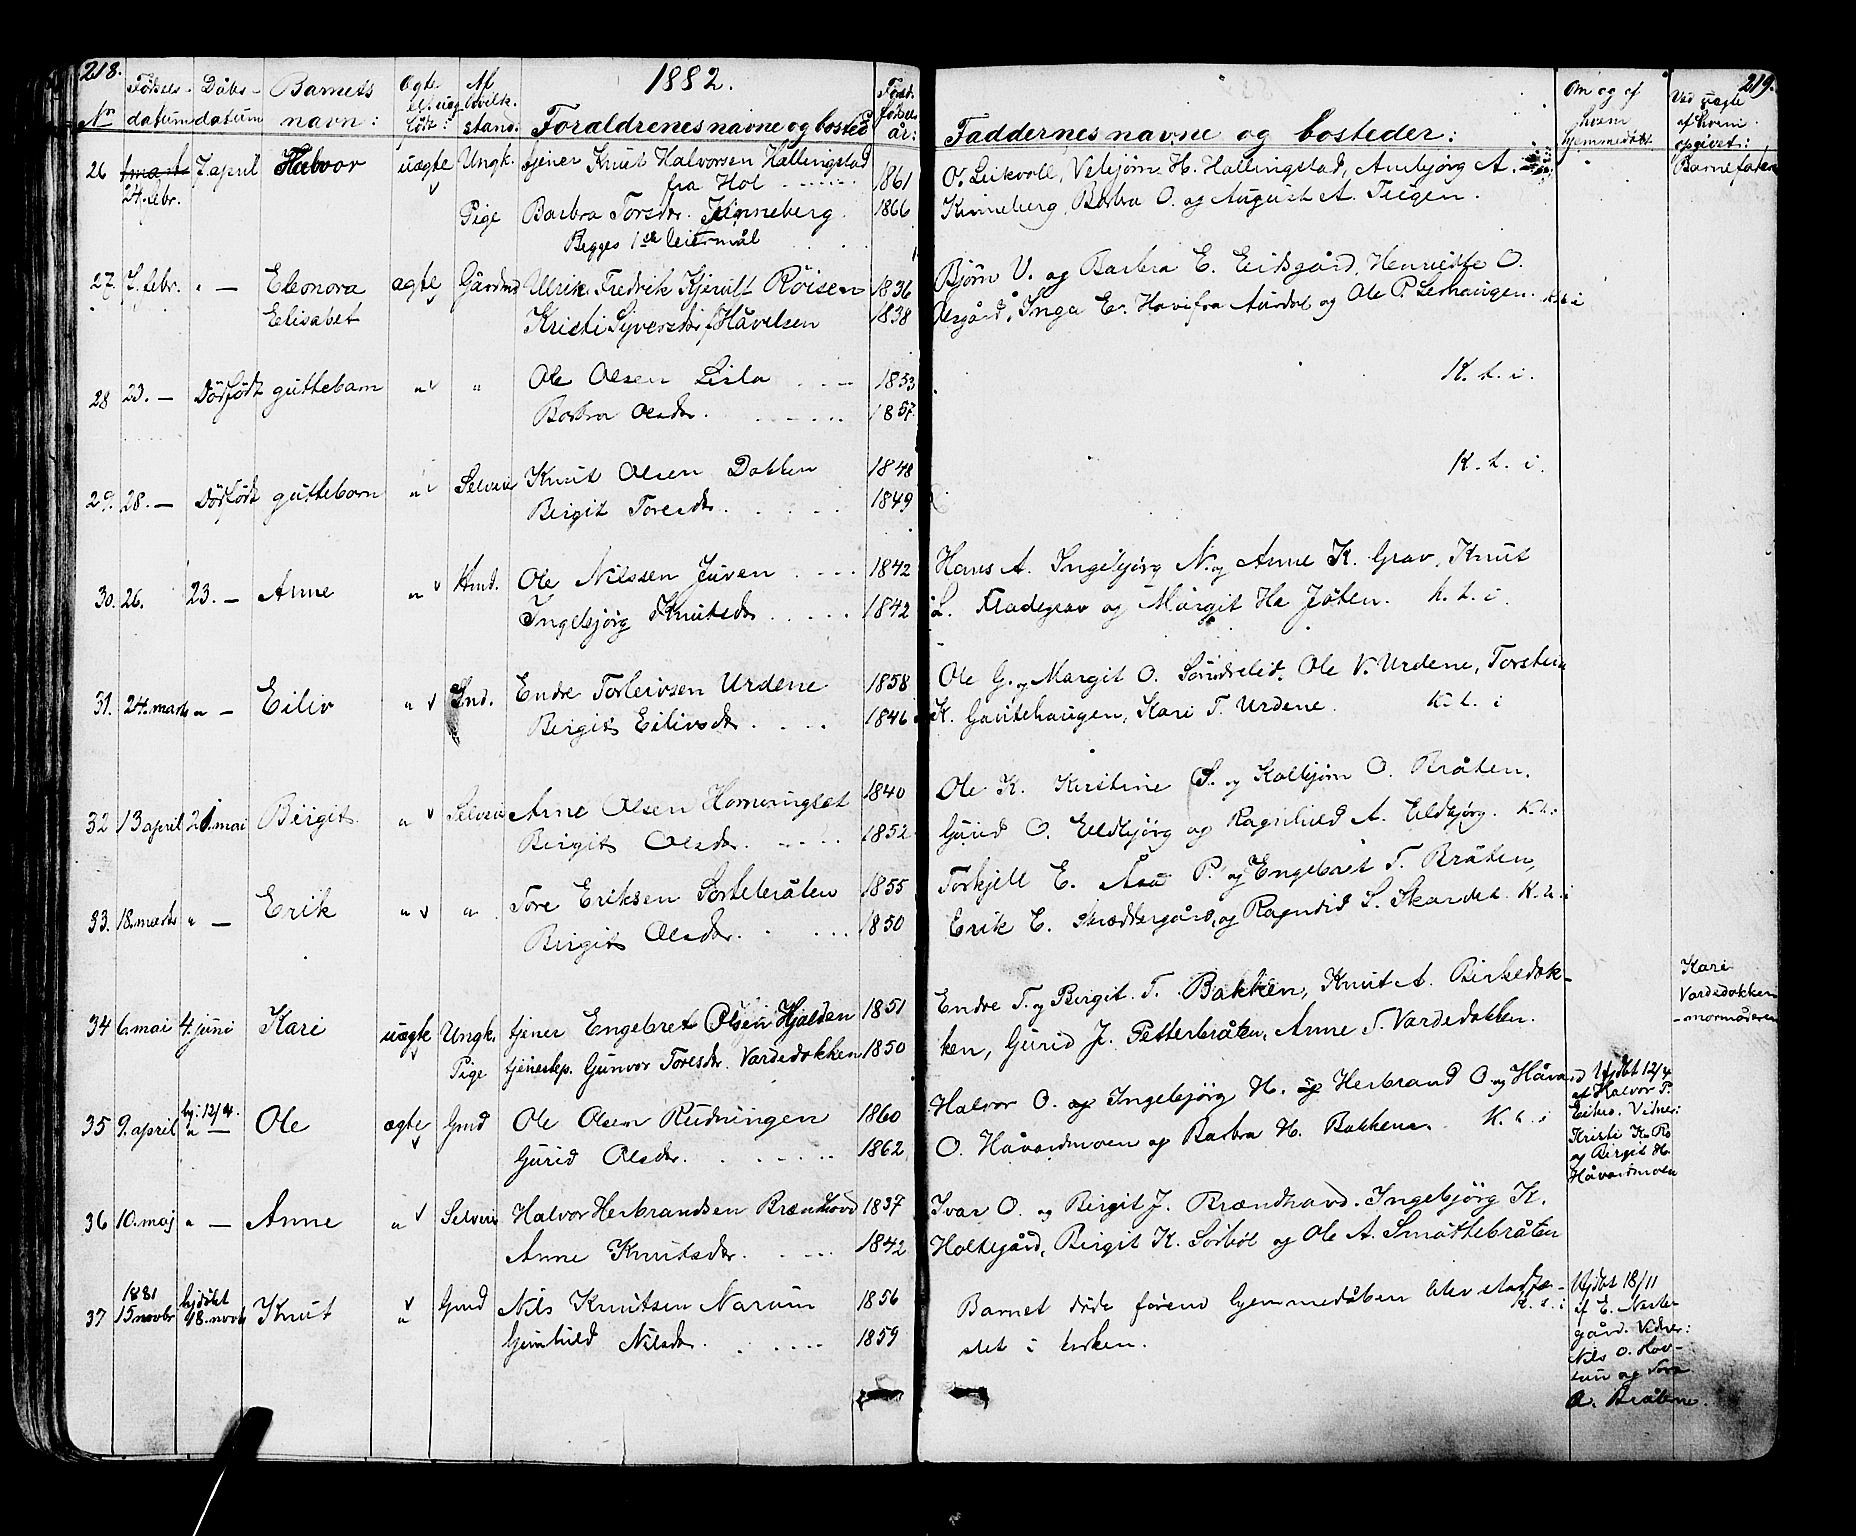 218.
1882.
Nr
Fødsels-datum
Dåbs-datum
Barnets navn:
Ægte el. uægte født:
stand:
Forældrenes navne og bosted
Foræl. fødsels år:
26 24. febr. 7. april Halvor uægte Ungk. tjener Knut Halvorsen Hallingstad
fra Hol 1861
Pige Barbra Torsdr. Kinneberg 1866
Begges 1ste leiermål
27. 7. febr. " — Eleonora ægte Gårdmd Ulrik Fredrik Kjerulf Röisen 1836
Elisabet Kristi Syversdr f. Håvelsen 1838
28 23. — Dödfödt guttebarn " " Ole Olsen Lisla 1853
Barbra Olsdr. 1857
29. 28. — Dödfödt guttebarn " Selveier Knut Olsen Dokken 1848
Birgit Toresdr. 1849
30. 26. 23. — Anne " Hmd. Ole Nilssen Juven 1842
Ingebjörg Knutsdr 1842
31. 24. marts " — Eiliv " Ind. Endre Torleivsen Urdene 1858
Birgit Eilivsdr 1846
32 13 april 21. mai Birgit " Selveier Arne Olsen Hommingset 1840
Birgit Olsdr. 1852
33. 18. marts " — Erik " " Tore Eriksen Sortebråten 1855
Birgit Olsdr. 1850
34 6. mai 4. juni Kari uægte Ungk. tjener Engebret Olsen Hjalden 1851
Pige tjenestep. Gunvor Toresdr. Vardedokken 1850
35 9. april hj. 12/4. " — Ole ægte Gmd Ole Olsen Rudningen 1860
Gurid Olsdr. 1862
36 10. maj " — Anne " Selveier Halvor Herbrandsen Brændhovd 1837
Anne Knutsdr. 1842
37 1881 15 novbr hjdöbt 18. novb Knut " Gmd Nils Knutsen Narum 1856
Gunhild Nilsdr 1859
219.
Faddernes navne og bosteder:
Om og af hvem hjemmedöbt
Ved uægte af hvem opgivet:
O. Leikvoll, Vebjörn H. Hallingstad, Ambjörg A.
Barnefaderen
Kinneberg, Barbra O. og August A. Teigen.
Bjørn U. og Barbra E. Eriksgård, Henriette O.
Olsgård, Inga E. Hovi fra Aurdal og Ole P. Lerhaugen. K. h. i
K. h. i.
K. h. i.
Hans A. Ingebjörg N. og Anne K. Grav, Knut
L. Fladegrav og Margit Ha Jöten. K. h. i.
Ole G. og Margit O. Söndreleid. Ole V. Urdene, Torstein
K. Gautehaugen, Kari T. Urdene. K. h. i
Ole K. Kirstine S. og Kolbjörn O. Bråten.
Gurid O. Eldbjörg og Ragnhild A. Eldbjörg. K. h. i
Torkjell E. Åsa P. og Engebret T. Bråten,
Erik E. Skræddergård, og Ragndid S. Skardet K. h. i
Endre T. og Birgit T. Bakken, Knut A. Birkedok-
ken, Gurid J. Petterbråten, Anne T. Vardedokken.
Kari
Vardedokken
- mormoderen
Halvor O. og Ingebjörg H. og Herbrand O. og Håvard
O. Håvardmoen og Barbra H. Bakken. K. h. i
Hjdöbt 12/4
af Halvor P.
Vidner:
Kristi K. Ro
og Birgit H.
Håvardmoen
Ivar O. og Birgit J. Brændhovd. Ingebjörg K.
Holtegård, Birgit K. Sörböl og Ole A. Smøttebråten
Barnet döde förend hjemmedåben blev stadfæ-
K. h. i
stet i kirken.
Hjdöbt 18/11
af E. Nerte-
gård. Vidner:
Nils O. Hov-
tun og Tore
O. Bråtene.